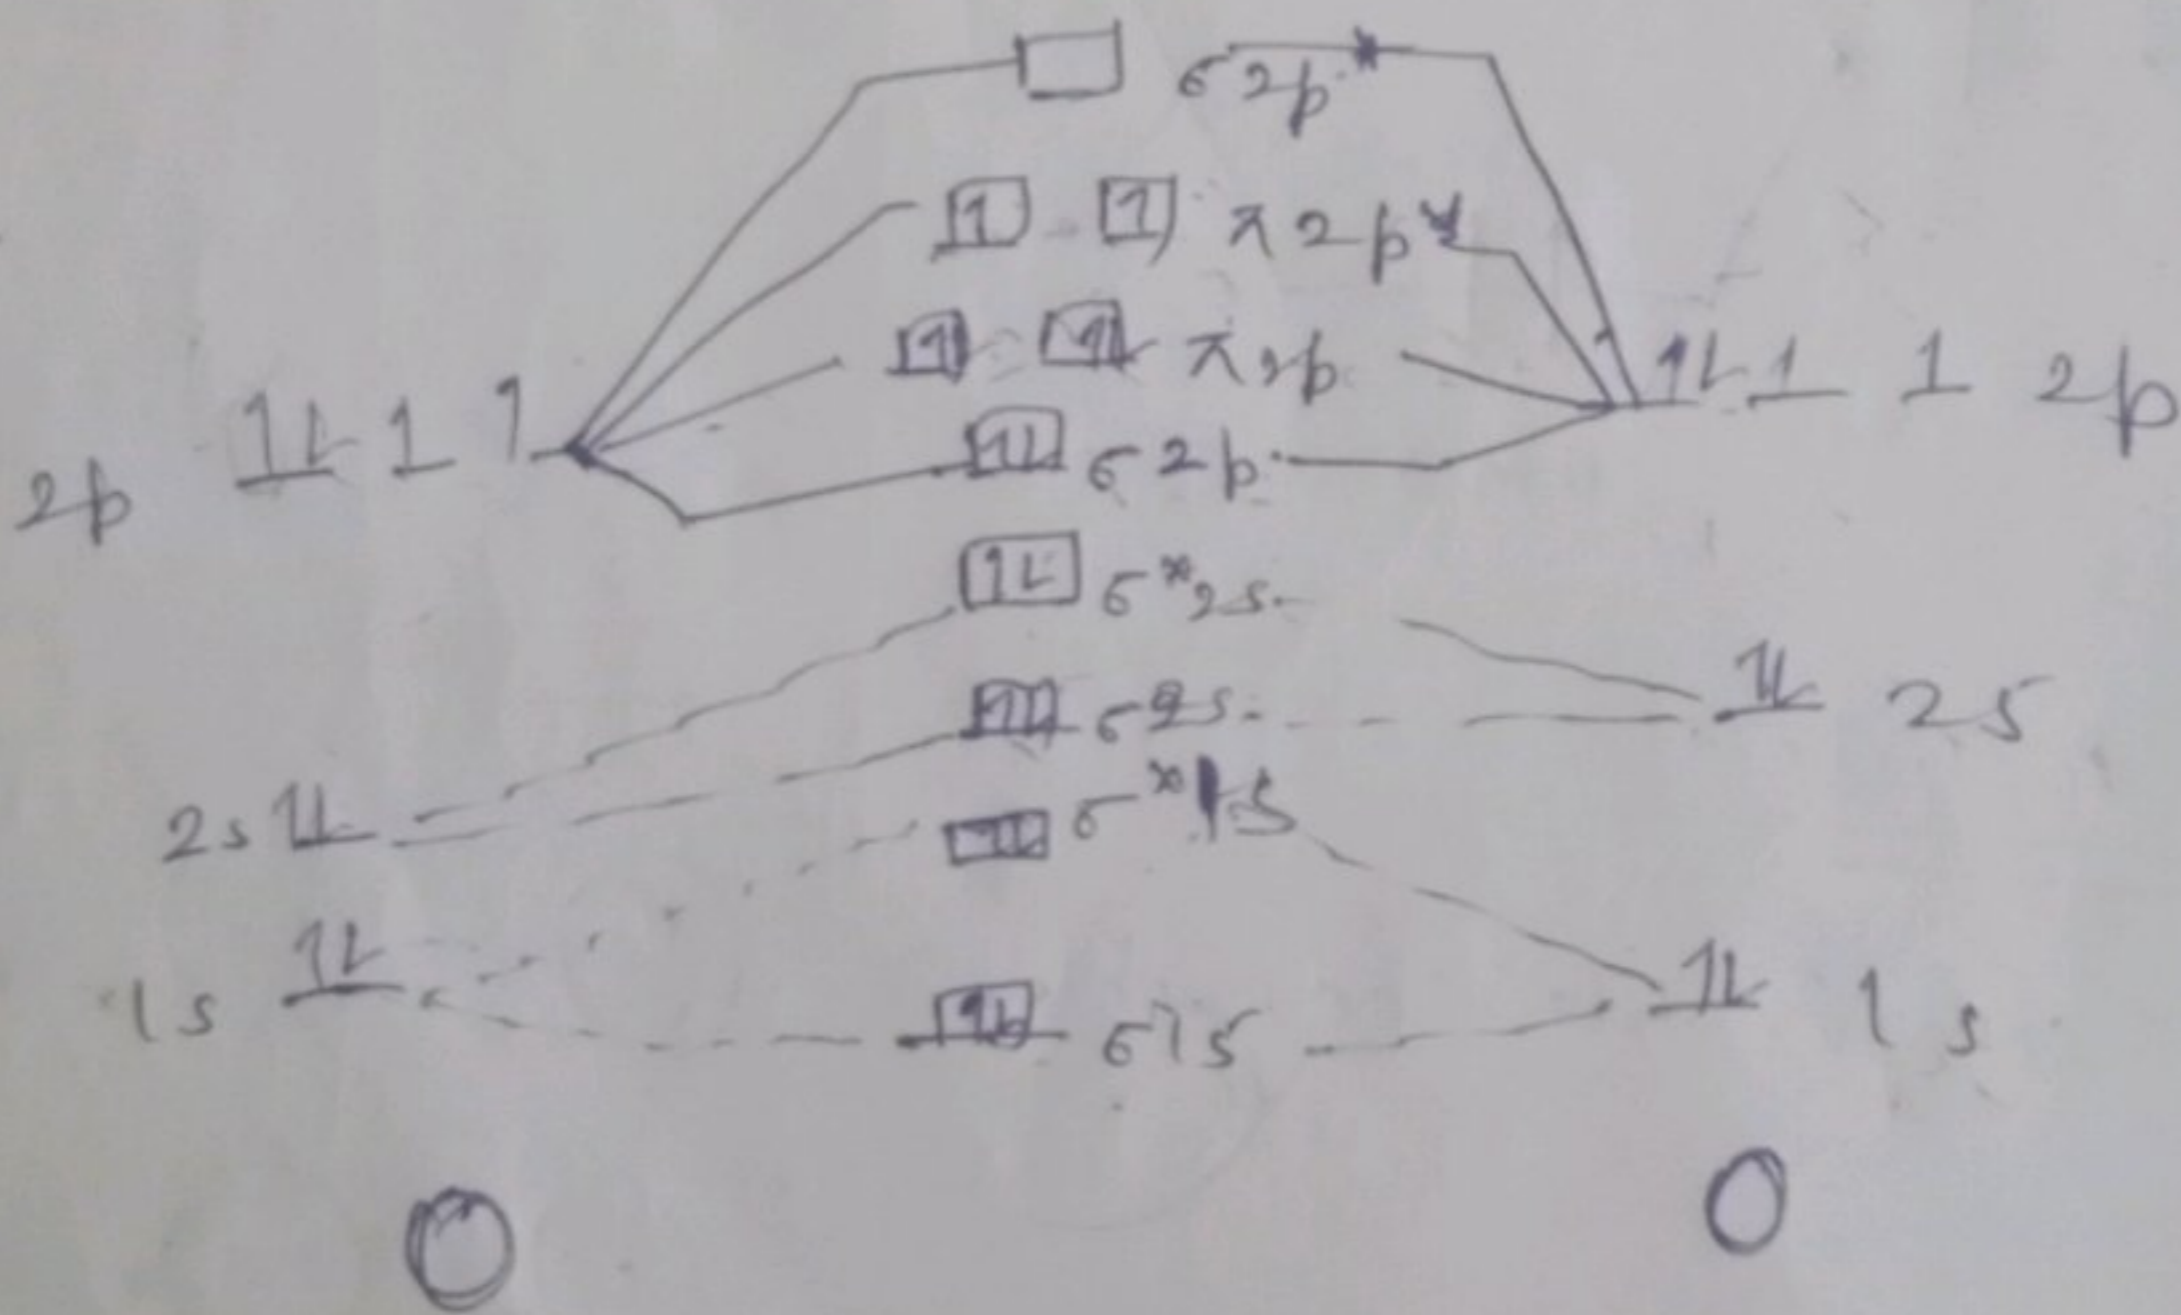 σ 2p *
1 1 π 2p *
1L 1L π 2p
2p 1L 1 1
1L 1 1 2p
1L σ 2p
1L σ* 2s
1L σ 2s
1L 2s
2s 1L
1L σ* 1s
1s 1L
1L σ 1s
1L 1s
O O